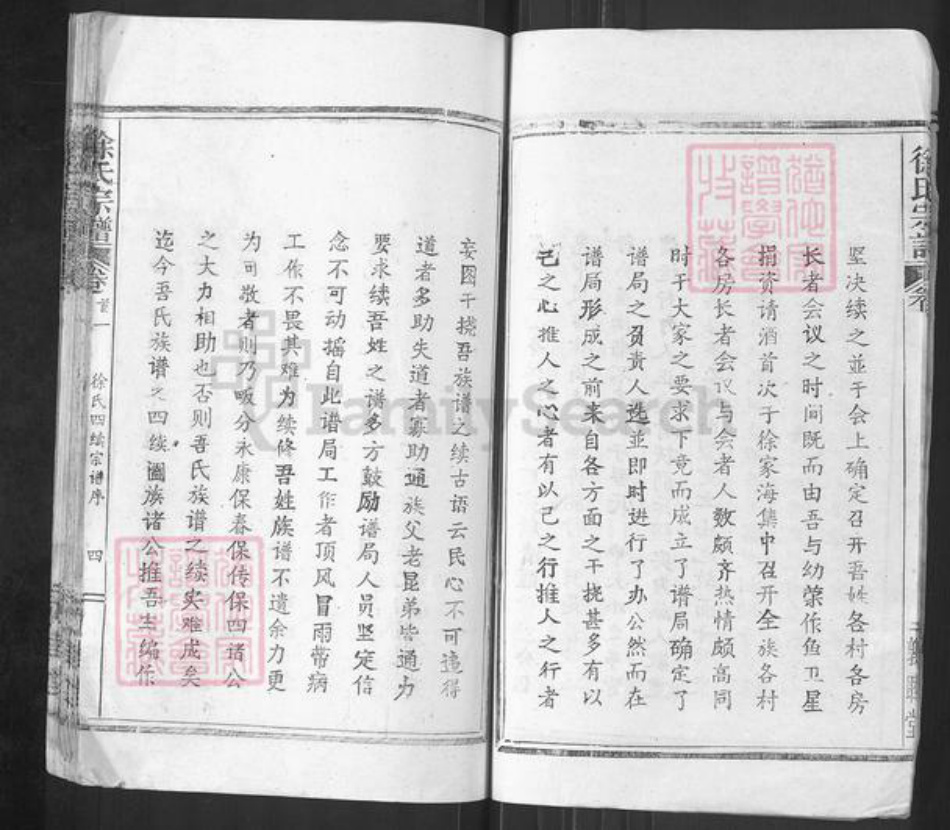 徐氏宗譜
坚决续之並于会上确定召开吾姓各村各房
长者会议之时间既而由吾与幼荣作鱼卫星
捐资请酒首次于徐家海集中召开全族各村
各房长者会议与会者人数颇齐热情颇高同
时于大家之要求下竟而成立了谱局确定了
谱局之负责人选並即时进行了办公然而在
谱局形成之前来自各方面之干挠甚多有以
己之心推人之心者有以己之行推人之行者
妄图干挠吾族谱之续古语云民心不可违得
道者多助失道者寡助通族父老昆弟皆通力
要求续吾姓之谱多方鼓励谱局人员坚定信
念不可动摇自此谱局工作者顶风冒雨带病
工作不畏其难为续修吾姓族谱不遗余力更
为可敬者则乃畈分永康保春保传保四诸公
之大力相助也否则吾氏族谱之续实难成矣
迄今吾氏族谱之四续圈族诸公推吾主编作
徐氏宗譜
卷首一
徐氏四续宗谱序
四
FamilySearch